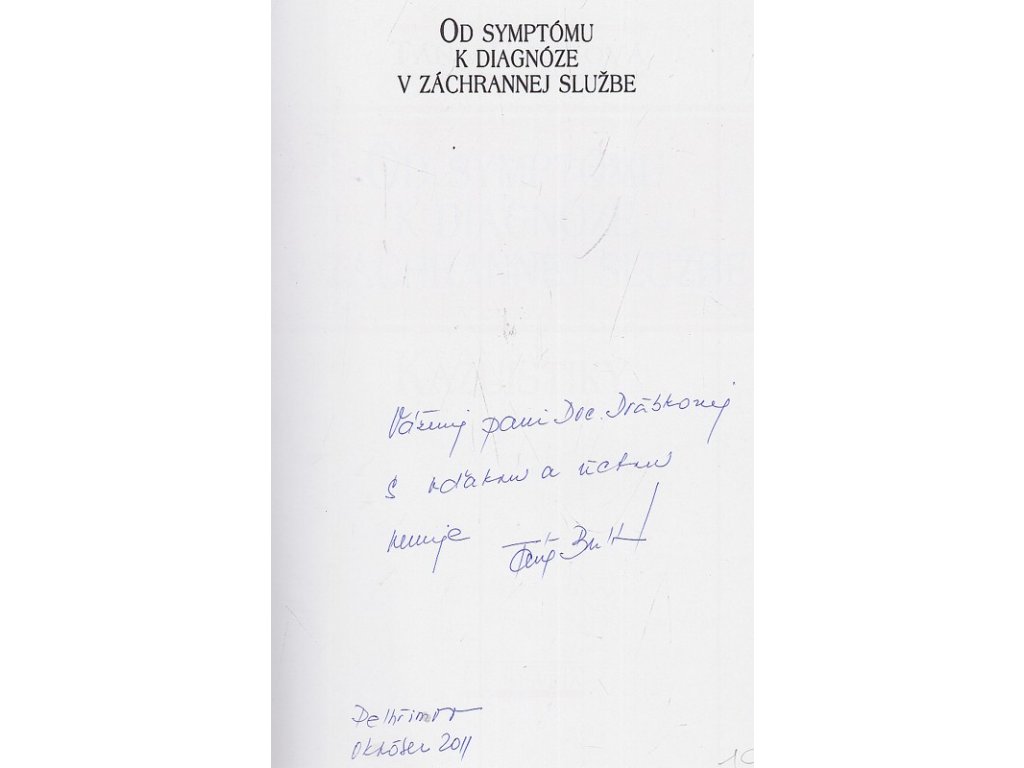 OD SYMPTÓMU
K DIAGNÓZE
V ZÁCHRANNEJ SLUŽBE
Váženej pani Doc. Drábkovej
s vďakou a úctou
venuje
Pelhřimov
október 2011